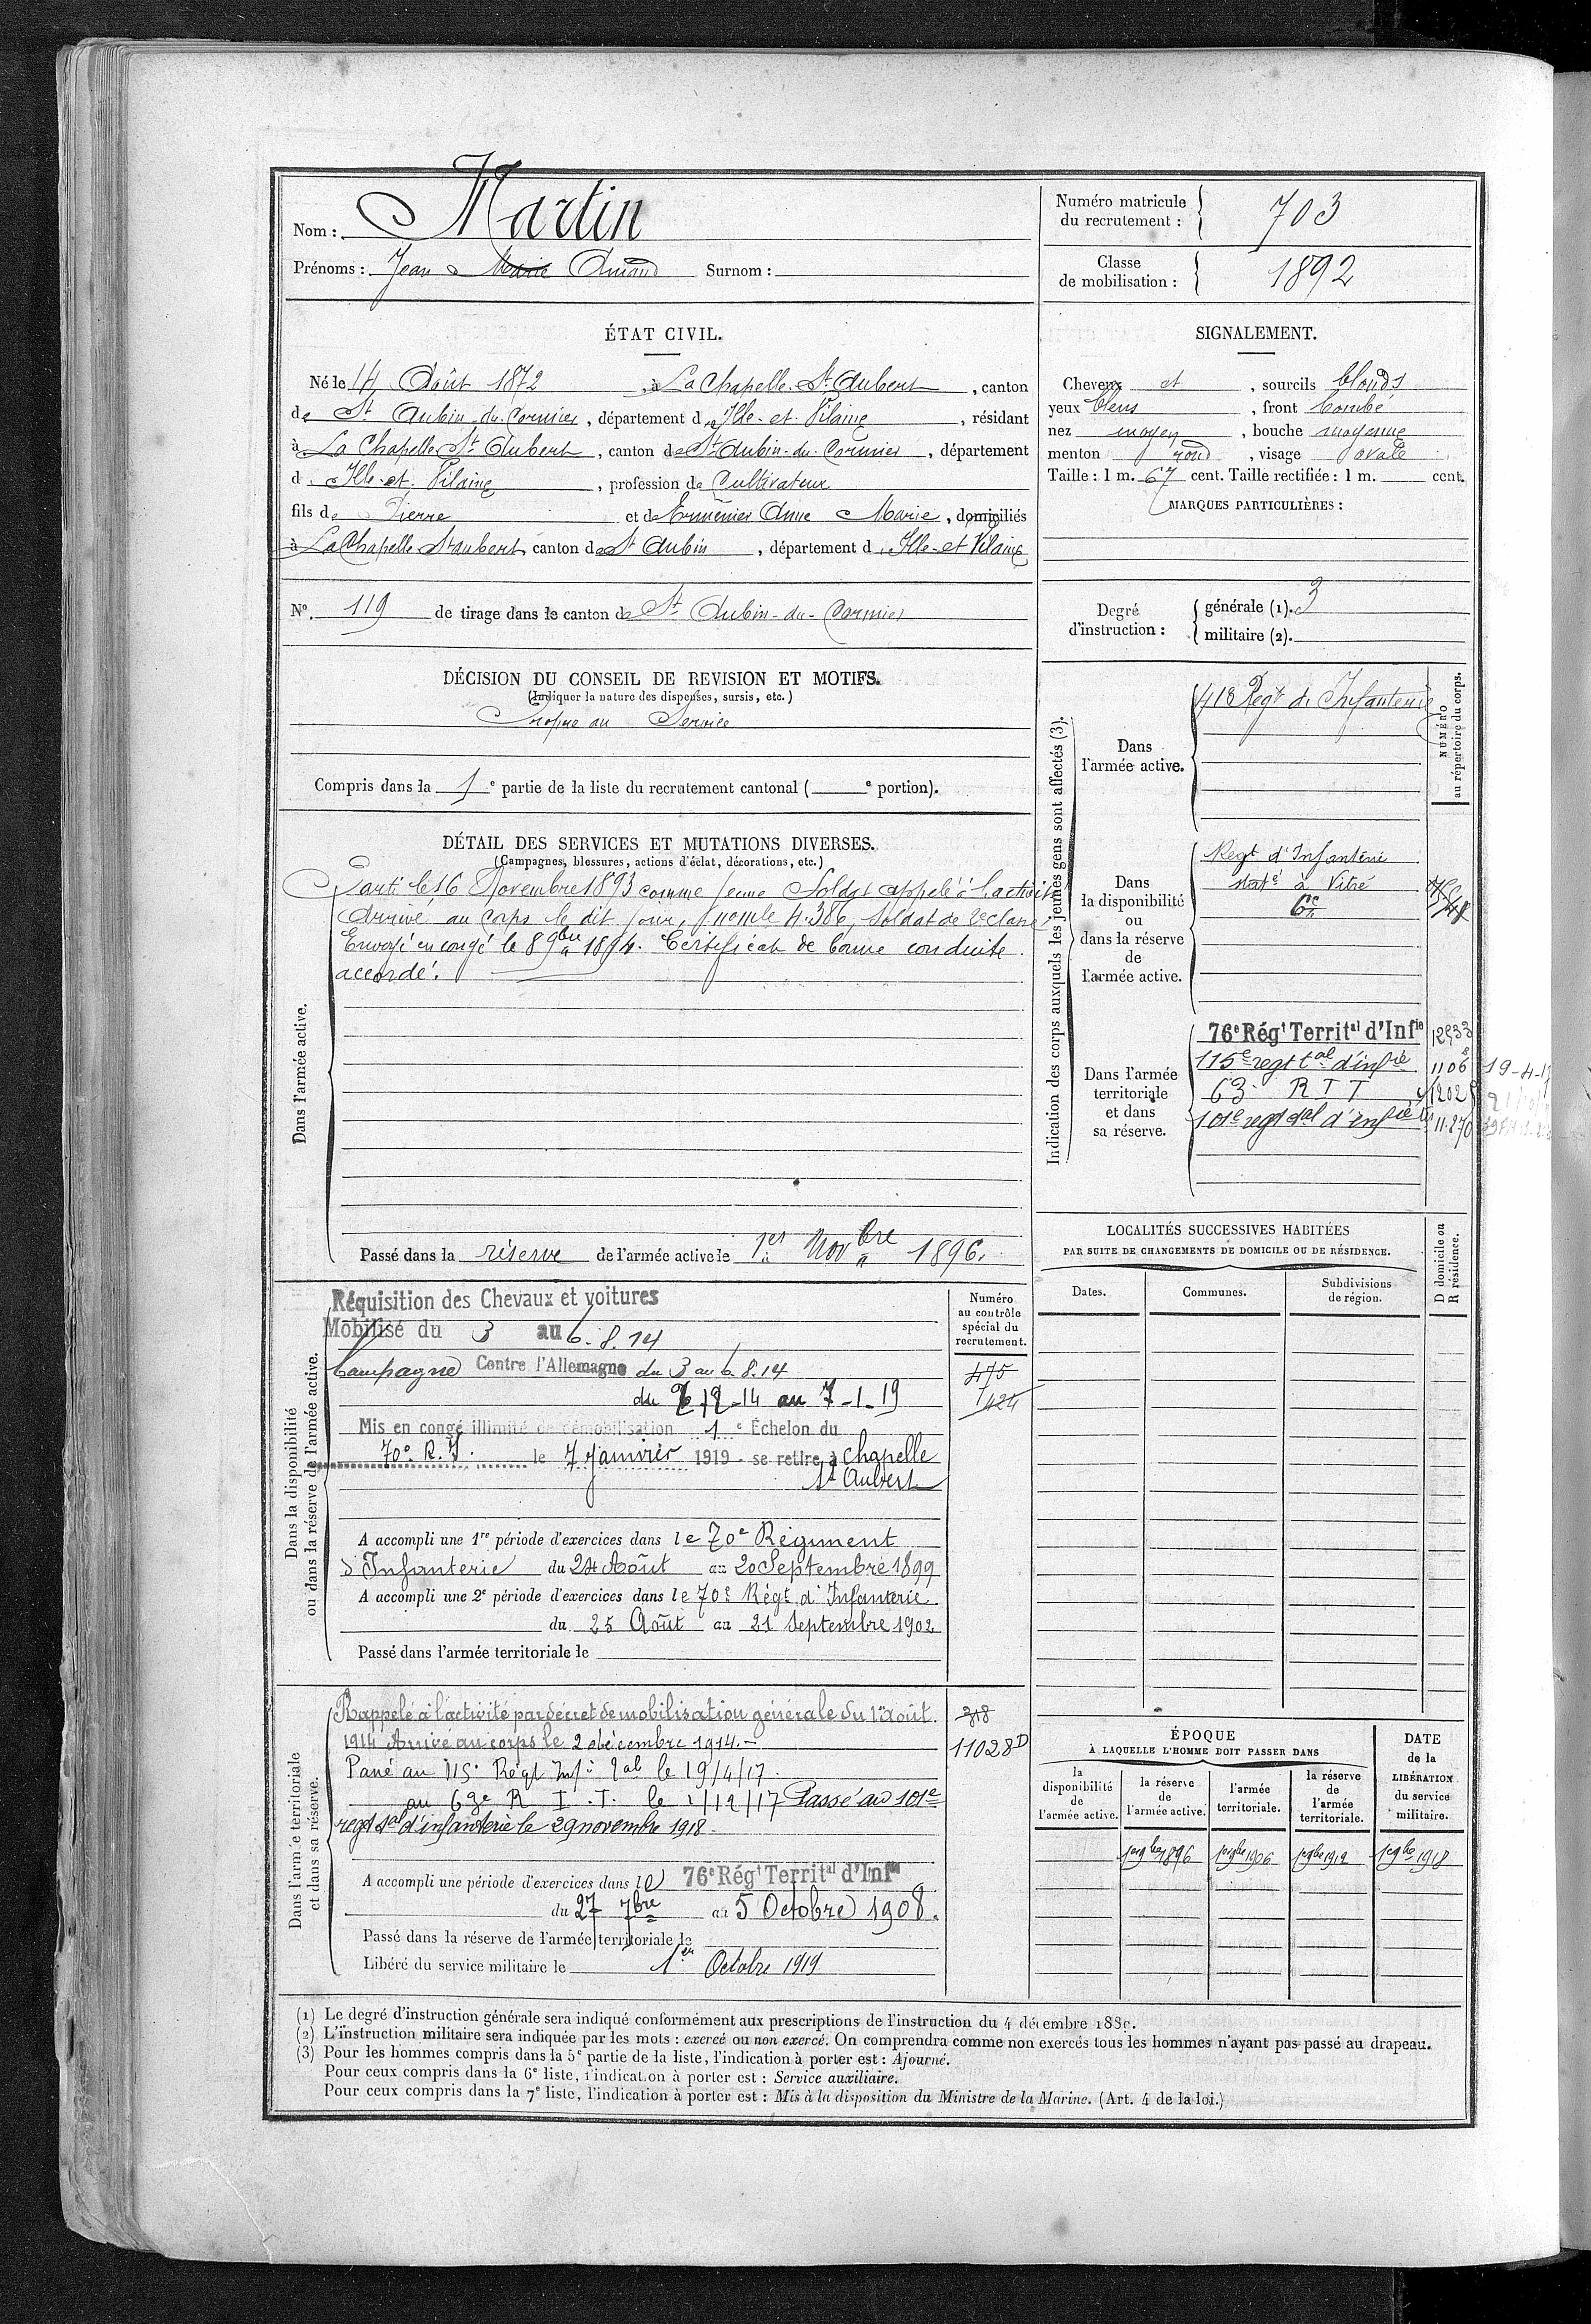 Nom : Martin
Prénoms : Jean Marie Amand Surnom :
Numéro matricule du recrutement : 703
Classe de mobilisation : 1892
ÉTAT CIVIL.
Né le 14 Août 1872, à La Chapelle St Aubert, canton
de St Aubin du Cormier, département d'Ille-et-Vilaine, résidant
à La Chapelle St Aubert, canton de St Aubin-du-Cormier, département
d'Ille-et-Vilaine, profession de Cultivateur
fils de Pierre et de Anne Marie, domiciliés
à La Chapelle St aubert, canton de St Aubin, département d'Ille-et-Vilaine
No. 119 de tirage dans le canton de St Aubin-du-Cormier
SIGNALEMENT.
Cheveux et, sourcils blonds
yeux bleus, front bombé
nez moyen, bouche moyenne
menton rond, visage ovale
Taille : 1 m. 67 cent. Taille rectifiée : 1 m. cent.
MARQUES PARTICULIÈRES :
Degré d'instruction :
générale (1). 3
militaire (2).
DÉCISION DU CONSEIL DE REVISION ET MOTIFS.
(Indiquer la nature des dispenses, sursis, etc.)
Propre au Service
Compris dans la 1e partie de la liste du recrutement cantonal ( e portion).
DÉTAIL DES SERVICES ET MUTATIONS DIVERSES.
(Campagnes, blessures, actions d'éclat, décorations, etc.)
Dans l'armée active.
Parti le 16 Novembre 1893 comme jeune Soldat appelé à l'activité
Arrivé au Corps le dit jour, nomle 4.386, Soldat de 2e classe
Envoyé en congé le 8 9bre 1894. Certificat de bonne conduite
accordé.
Passé dans la réserve de l'armée active le 1er Novbre 1896.
Indication des corps auxquels les jeunes gens sont affectés (3).
NUMÉRO au répertoire du corps.
Dans l'armée active.
Regt d'Infanterie
Dans la disponibilité ou dans la réserve de l'armée active.
Regt d'Infanterie
à Vitré
Dans l'armée territoriale et dans sa réserve.
76e Régt Territal d'Infie
115e regt tal d'infie 1106 19-4-17
63 R I T
101e regt tal d'infie 11.270
LOCALITÉS SUCCESSIVES HABITÉES
PAR SUITE DE CHANGEMENTS DE DOMICILE OU DE RÉSIDENCE.
Dates. Communes. Subdivisions de région.
D domicile ou R résidence.
Dans la disponibilité ou dans la réserve de l'armée active.
Numéro au contrôle spécial du recrutement.
Réquisition des Chevaux et voitures
Mobilisé du 3 au 6.8.14
Campagne Contre l'Allemagne du 3 au 6.8.14
475
du 2-12-14 au 7-1-19
1424
Mis en congé illimité de démobilisation 1e Échelon du
70e R.I. le 7 Janvier 1919 - se retire à Chapelle
St Aubert
A accompli une 1re période d'exercices dans le 70e Régiment
d'Infanterie du 24 Août au 20 Septembre 1899
A accompli une 2e période d'exercices dans le 70e Régt d'Infanterie
du 25 Août au 21 Septembre 1902
Passé dans l'armée territoriale le
Dans l'armée territoriale et dans sa réserve.
Rappelé à l'activité par décret de mobilisation générale du 1er août
1914 Arrivé au corps le 2 décembre 1914.-
318
11028D
Passé au 115e Régt Infie tal le 19/4/17.
au 63e R.I.T. le 1/12/17 Passé au 101e
regt tal d'infanterie le 29 novembre 1918.
A accompli une période d'exercices dans le 76e Régt Territal d'Infie
du 27 7bre au 5 Octobre 1908.
Passé dans la réserve de l'armée territoriale le
Libéré du service militaire le 1er Octobre 1919
ÉPOQUE
À LAQUELLE L'HOMME DOIT PASSER DANS
la disponibilité de l'armée active. la réserve de l'armée active. l'armée territoriale. la réserve de l'armée territoriale.
DATE de la LIBÉRATION du service militaire.
1er 9bre 1896 1er 9bre 1906 1er 9bre 1912 1er 9bre 1918
(1) Le degré d'instruction générale sera indiqué conformément aux prescriptions de l'instruction du 4 décembre 1889.
(2) L'instruction militaire sera indiquée par les mots : exercé ou non exercé. On comprendra comme non exercés tous les hommes n'ayant pas passé au drapeau.
(3) Pour les hommes compris dans la 5e partie de la liste, l'indication à porter est : Ajourné.
Pour ceux compris dans la 6e liste, l'indication à porter est : Service auxiliaire.
Pour ceux compris dans la 7e liste, l'indication à porter est : Mis à la disposition du Ministre de la Marine. (Art. 4 de la loi.)